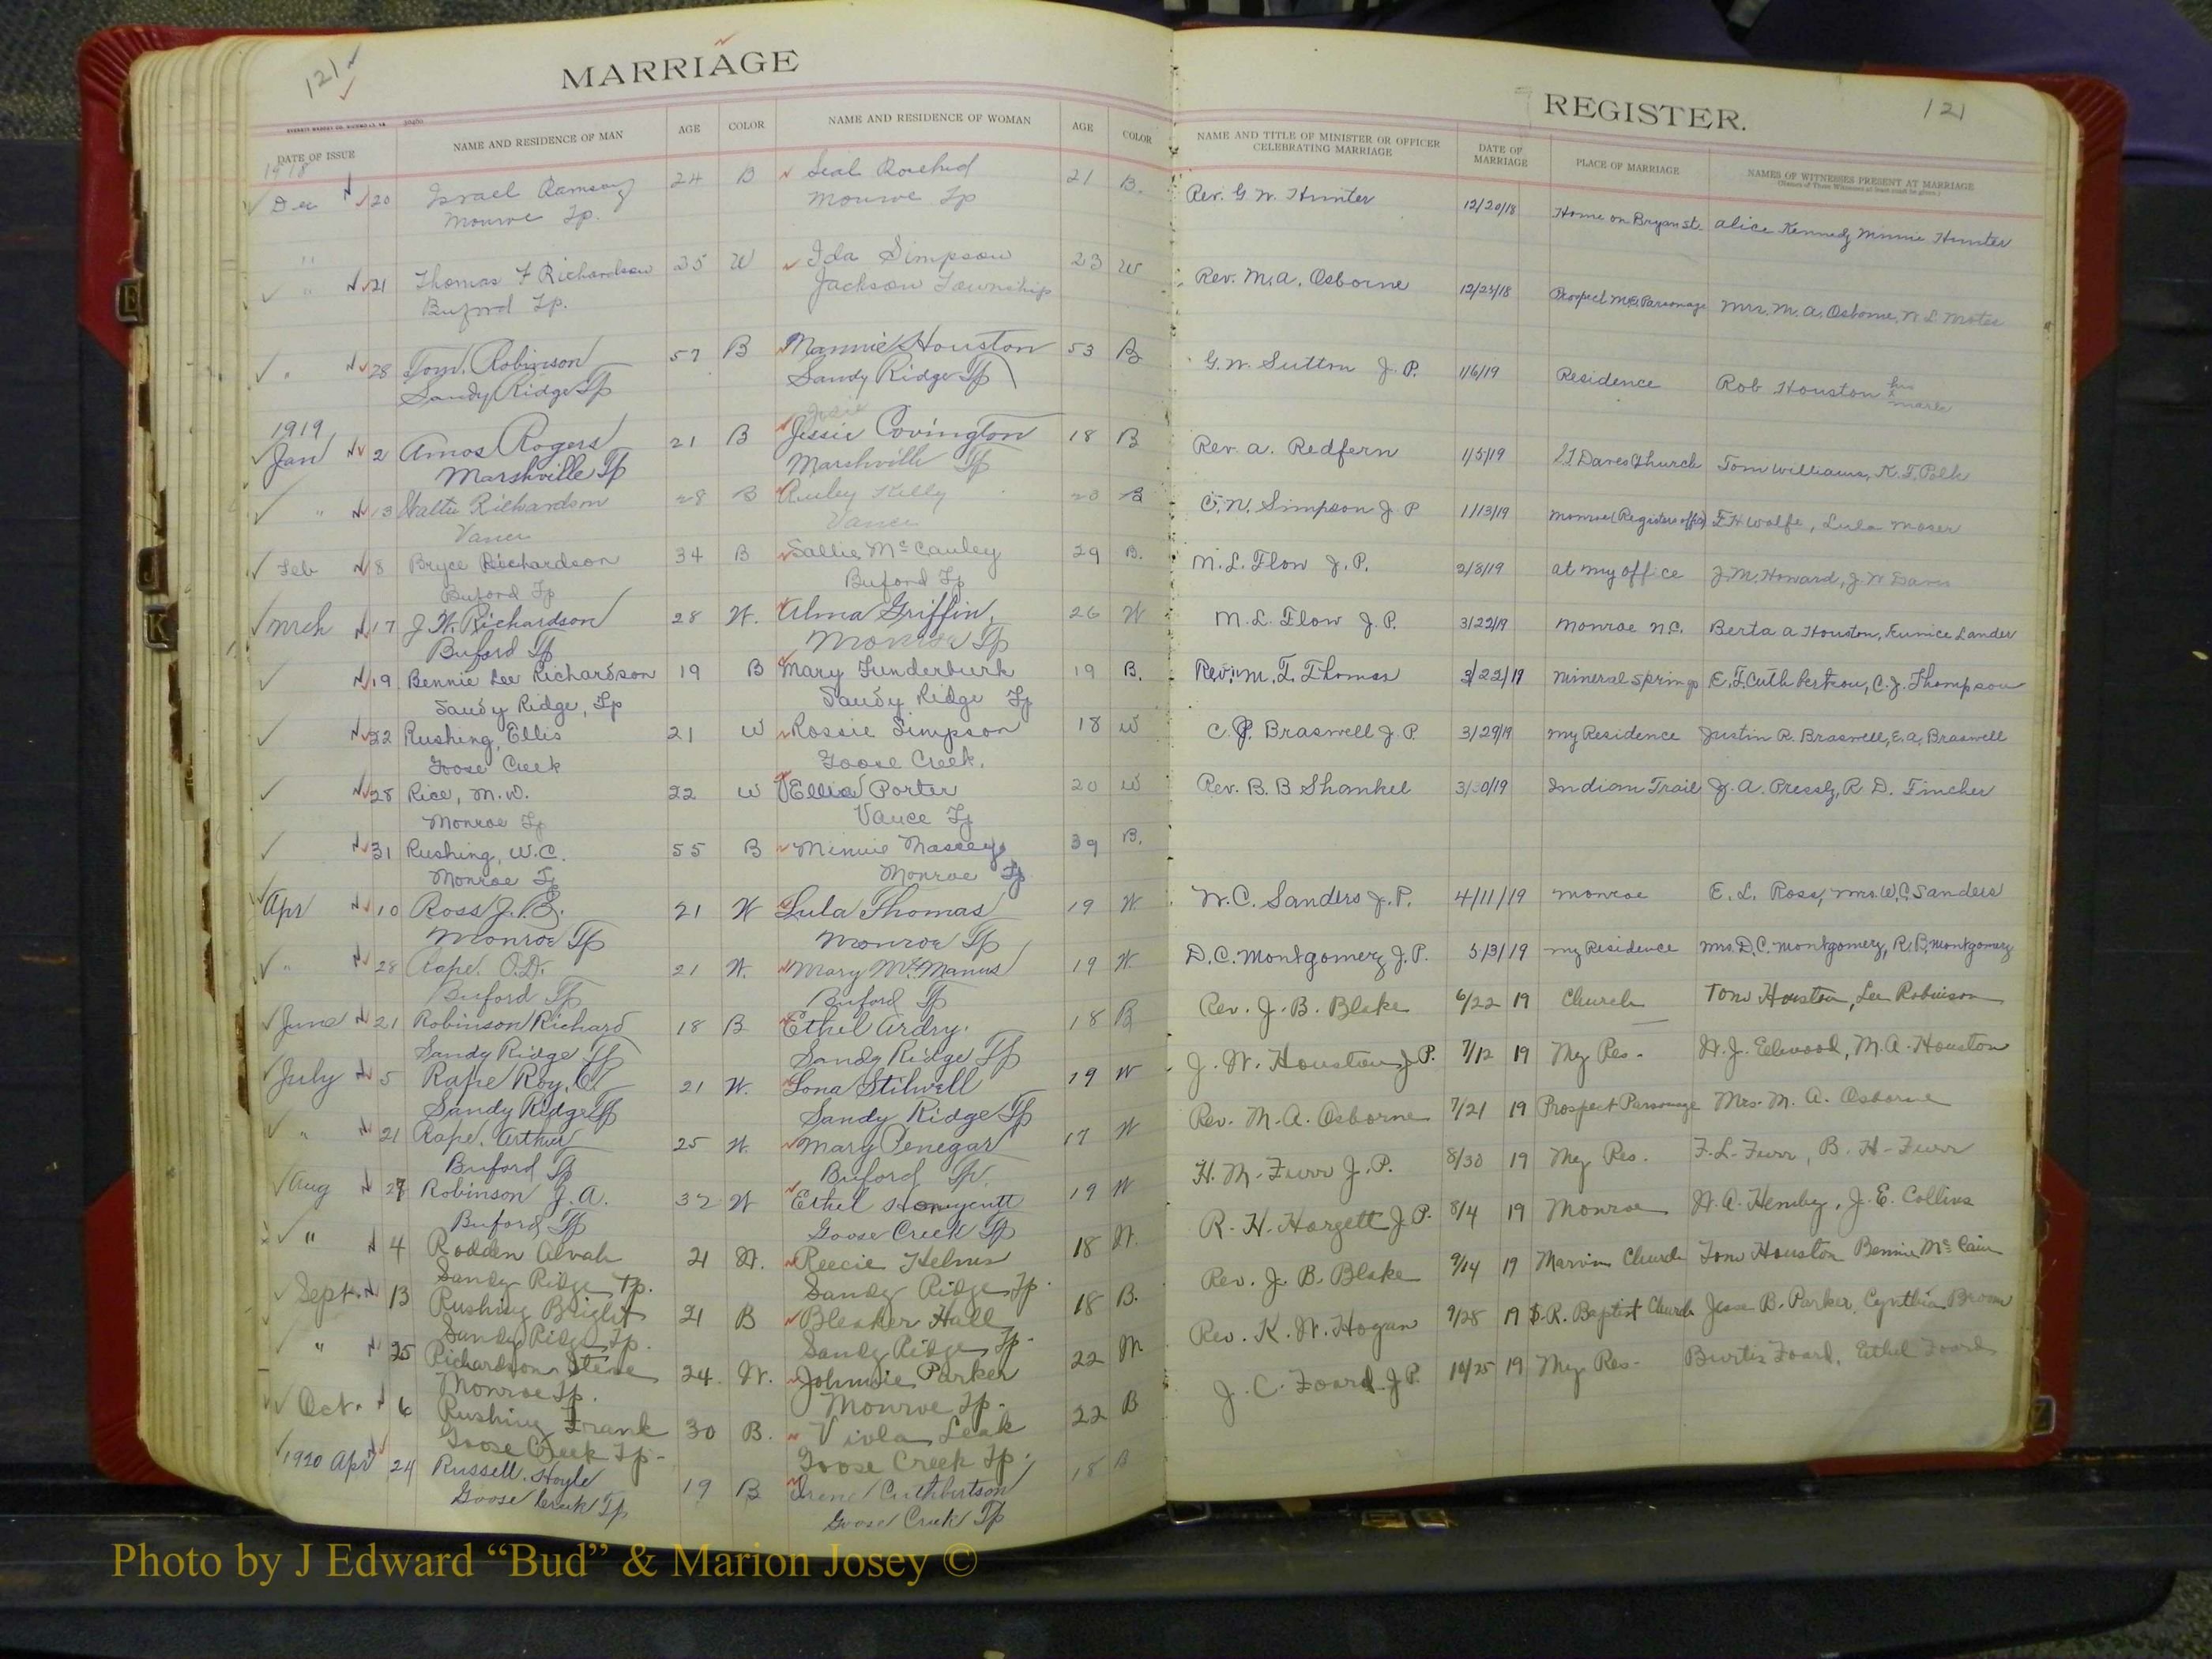 121
MARRIAGE
EVERETT WADDEY CO. RICHMOND, VA.
DATE OF ISSUE NAME AND RESIDENCE OF MAN AGE COLOR NAME AND RESIDENCE OF WOMAN AGE COLOR
1918
Dec 20 Israel Ramsey 24 B Seal 21 B.
Monroe Tp. Monroe Tp
" 21 Thomas F Richardson 25 W Ida Simpson 23 W
Buford Tp. Jackson Township
" 28 Tom. Robinson 57 B Mannie Houston 53 B
Sandy Ridge Tp Sandy Ridge Tp
1919
Josie
Jan 2 Amos Rogers 21 B Jessie Covington 18 B
Marshville Tp Marshville Tp
" 13 Walter Richardson 28 B Ruby Kelly 20 B
Vance Vance
Feb 8 Bryce Richardson 34 B Sallie McCauley 29 B.
Buford Tp Buford Tp
Mrch 17 J. W. Richardson 28 W. Alma Griffin, 26 W
Buford Tp Monroe Tp
19 Bennie Lee Richardson 19 B Mary Funderburk 19 B.
Sandy Ridge, Tp Sandy Ridge Tp
22 Rushing, Ellis 21 W Rossie Simpson 18 W
Goose Creek Goose Creek.
28 Rice, M. W. 22 W Ellia Porter 20 W
Monroe Tp Vance Tp
31 Rushing, W.C. 55 B Minnie Massey 39 B.
Monroe Tp Monroe Tp
Apr 10 Ross J. B. 21 W Lula Thomas 19 W.
Monroe Tp Monroe Tp
" 28 Rape. O.D. 21 W. Mary McManus 19 W.
Buford Tp Buford Tp
June 21 Robinson Richard 18 B Ethel Ardry. 18 B
Sandy Ridge Tp Sandy Ridge Tp
July 5 Rape Roy. C. 21 W. Lona Stilwell 19 W
Sandy Ridge Tp Sandy Ridge Tp
" 21 Rape. Arthur 25 W. Mary Penegar 17 W
Buford Tp Buford Tp.
Aug 27 Robinson J. A. 32 W Ethel Honeycutt 19 W
Buford Tp Goose Creek Tp
" 4 Rodden Alvah 21 W. Reecie Helms 18 W.
Sandy Ridge Tp. Sandy Ridge Tp.
Sept. 13 Rushing Bright 21 B Bleaker Hall 18 B.
Sandy Ridge Tp. Sandy Ridge Tp.
" 25 Richardson Steve 24. W. Johnsie Parker 22 W
Monroe Tp. Monroe Tp.
Oct. 6 Rushing Frank 30 B. Viola Leak 22 B
Goose Creek Tp. Goose Creek Tp.
1920 Apr 24 Russell. Hoyle 19 B Irene Cuthbertson 18 B
Goose Creek Tp Goose Creek Tp
REGISTER.
121
NAME AND TITLE OF MINISTER OR OFFICER CELEBRATING MARRIAGE DATE OF MARRIAGE PLACE OF MARRIAGE NAMES OF WITNESSES PRESENT AT MARRIAGE
(Names of Three Witnesses at least must be given.)
Rev. G. W. Hunter 12/20/18 Home on Bryan st. Alice Kennedy Minnie Hunter
Rev. M. A. Osborne 12/23/18 Prospect M.E. Parsonage Mrs. M. A. Osborne,
G. W. Sutton J. P. 1/6/19 Residence Rob Houston his x mark
Rev. A. Redfern 1/5/19 Church Tom Williams, K. F. Polk
C. N. Simpson J P 1/13/19 Monroe (Registers office) F. H. Wolfe, Lula Moser
M. L. Flow J. P. 2/8/19 at my office J. M. Howard, J. W. Davis
M. L. Flow J. P. 3/22/19 Monroe N.C. Berta A Houston, Eunice Lander
Rev. M. T. Thomas 3/22/19 Mineral Springs E. F. Cuthbertson, C. J. Thompson
C. J. Braswell J. P. 3/29/19 my Residence Justin R. Braswell, E. A. Braswell
Rev. B. B Shankel 3/30/19 Indian Trail J. A. Pressly, R D. Fincher
W. C. Sanders J. P. 4/11/19 Monroe E. L. Ross, Mrs. W. C. Sanders
D. C. Montgomery J. P. 5/3/19 my Residence Mrs. D. C. Montgomery, R. B. Montgomery
Rev. J. B. Blake 6/22 19 Church Tom Houston, Lee Robinson
J. W. Houston J. P. 7/12 19 My Res. M. A. Houston
Rev. M. A. Osborne 7/21 19 Prospect Parsonage Mrs. M. A. Osborne
H. M. Furr J. P. 8/30 19 My Res. F. L. Furr, B. H. Furr
R. H. Hargett J P. 8/4 19 Monroe W. A. Hemby, J. E. Collins
Rev. J. B. Blake 9/14 19 Marvin Church Tom Houston Bennie McCain
Rev. K. W. Hogan 9/28 19 S. R. Baptist Church Jesse B. Parker, Cynthia Broom
J. C. Foard J P. 10/25 19 My Res. Burtis Foard, Ethel Foard
E
J
K
Z
Photo by J Edward “Bud” & Marion Josey ©